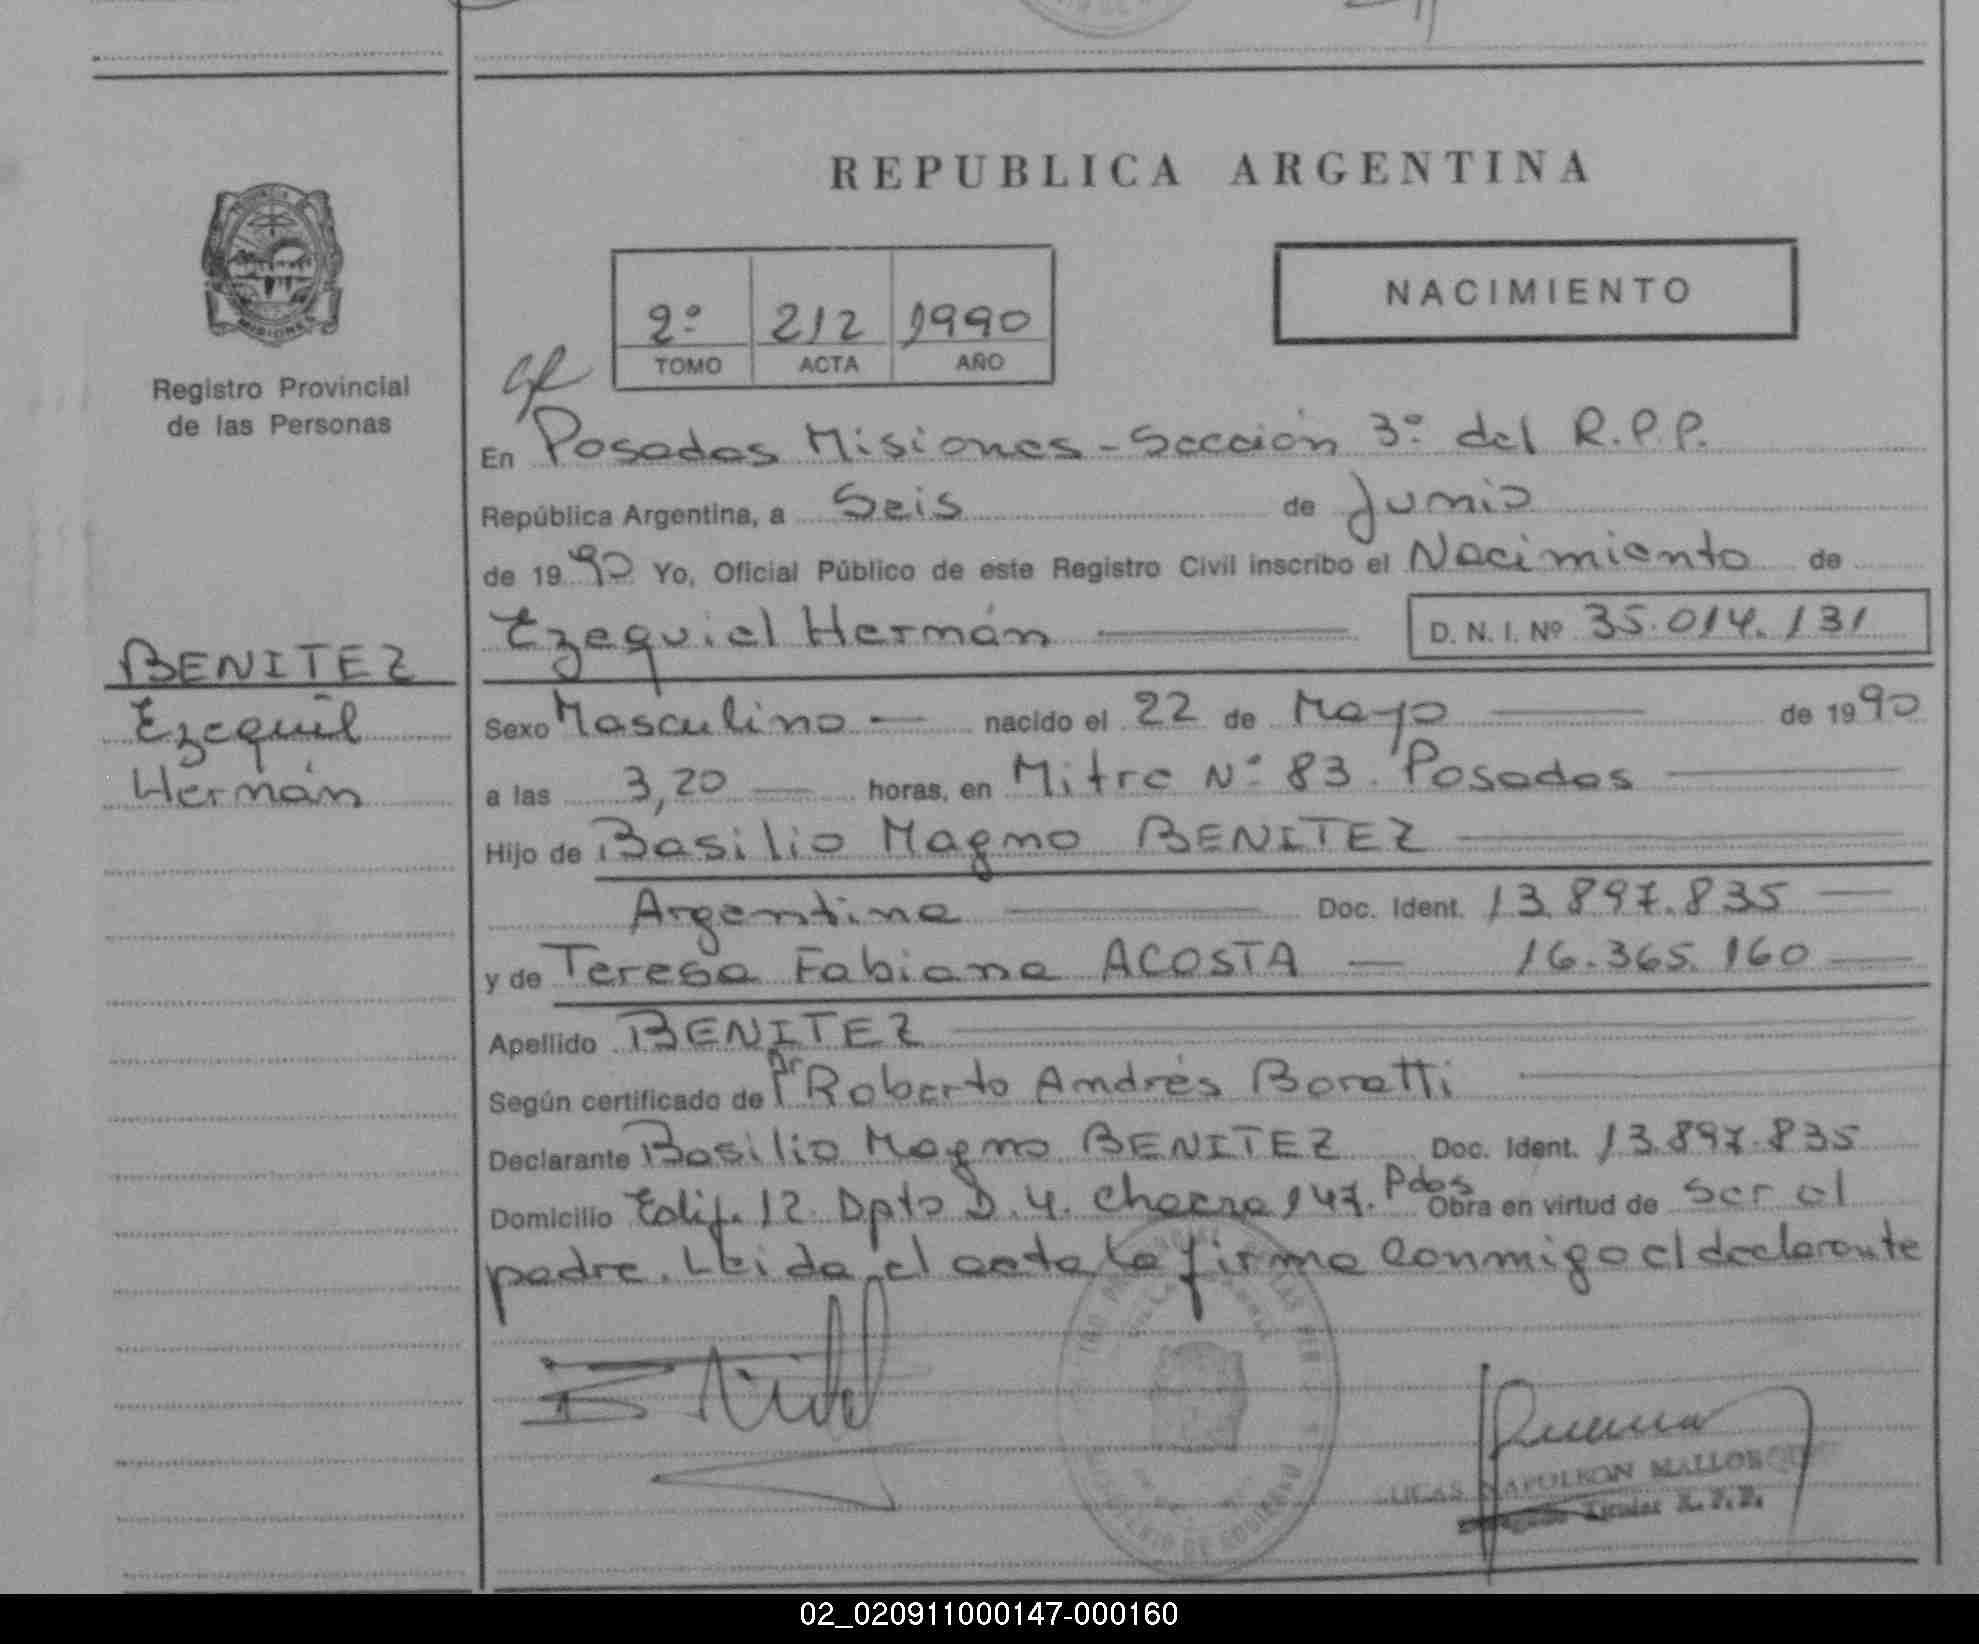 REPUBLICA ARGENTINA
NACIMIENTO
2º 212 1990
TOMO ACTA AÑO
MISIONES
Registro Provincial
de las Personas
En Posadas Misiones - Sección 3º del R.P.P.
República Argentina, a Seis de Junio
de 1990 Yo, Oficial Público de este Registro Civil inscribo el Nacimiento de
Ezequiel Hernán D. N. I. Nº 35.014.131
BENITEZ
Ezequiel
Hernán
Sexo Masculino — nacido el 22 de Mayo — de 1990
a las 3,20 — horas, en Mitre Nº 83. Posadas —
Hijo de Basilio Magno BENITEZ —
Argentina — Doc. Ident. 13.897.835 —
y de Teresa Fabiana ACOSTA — 16.365.160 —
Apellido BENITEZ —
Según certificado de Dr Roberto Andrés Boratti —
Declarante Basilio Magno BENITEZ Doc. Ident. 13.897.835
Domicilio Edif. 12. Dpto D. 4. Chacra 147. Pdas Obra en virtud de ser el
padre. Leida el acta la firma conmigo el declarante
LUCAS NAPOLEON MALLORQUIN
Titular R.P.P.
MINISTERIO DE GOBIERNO
02_020911000147-000160